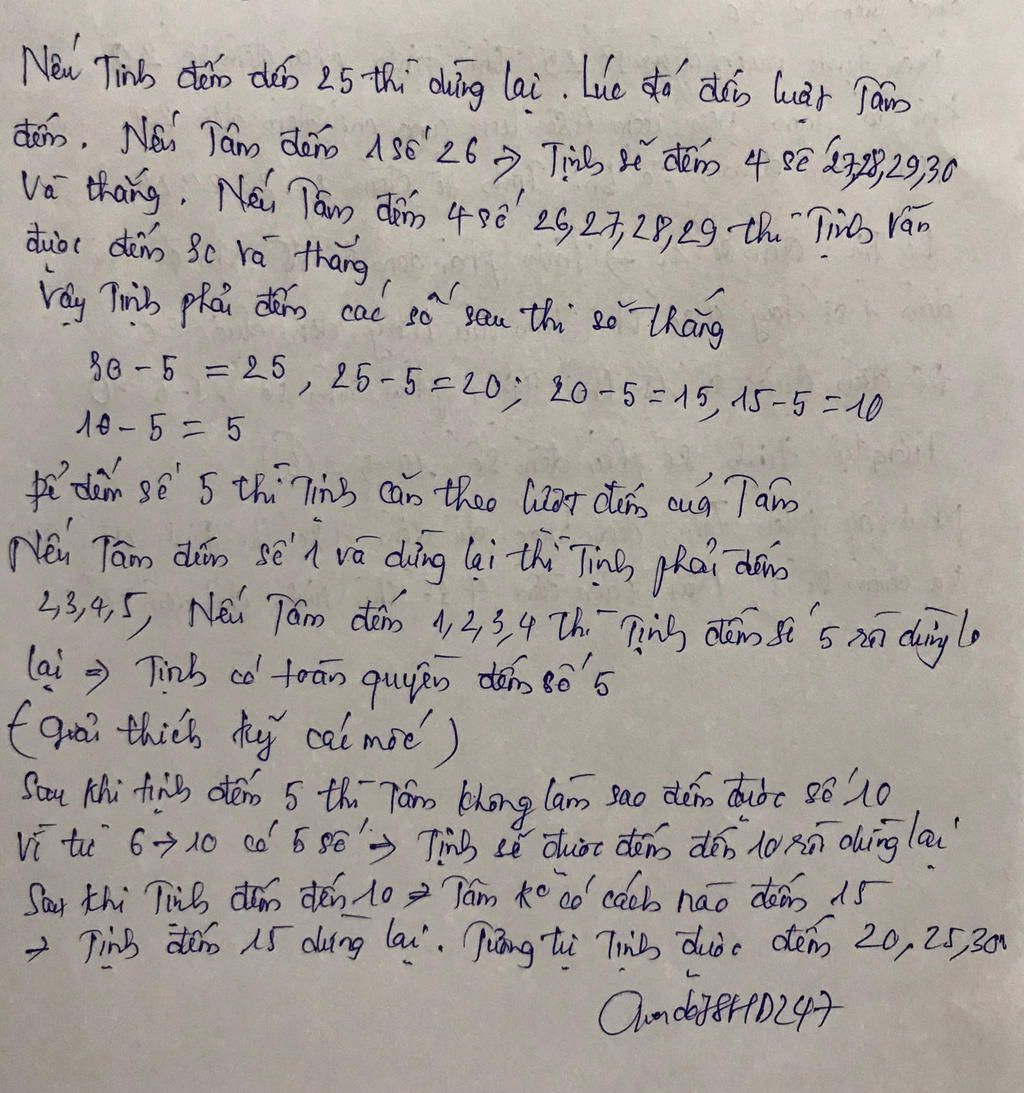 Nếu Tịnh đếm đến 25 thì dừng lại. Lúc đó đến lượt Tâm
đếm. Nếu Tâm đếm 1 số 26 => Tịnh sẽ đếm 4 số 27,28,29,30
Và thắng. Nếu Tâm đếm 4 số 26,27,28,29 thì Tịnh vẫn
được đếm 30 và thắng
Vậy Tịnh phải đếm các số sau thì sẽ thắng
30 - 5 = 25, 25 - 5 = 20; 20 - 5 = 15, 15 - 5 = 10
10 - 5 = 5
Để đếm số 5 thì Tịnh cần theo lượt đếm của Tâm
Nếu Tâm đếm số 1 và dừng lại thì Tịnh phải đếm
2,3,4,5, Nếu Tâm đếm 1,2,3,4 thì Tịnh đếm số 5 rồi dừng
lại => Tịnh có toàn quyền đếm số 5
(Giải thích kỹ các mốc)
Sau khi tịnh đếm 5 thì Tâm không làm sao đếm được số 10
Vì từ 6 → 10 có 5 số => Tịnh sẽ được đếm đến 10 rồi dừng lại
Sau khi Tịnh đếm đến 10 => Tâm ko có cách nào đếm 15
→ Tịnh đếm 15 dừng lại. Tương tự Tịnh được đếm 20, 25, 30